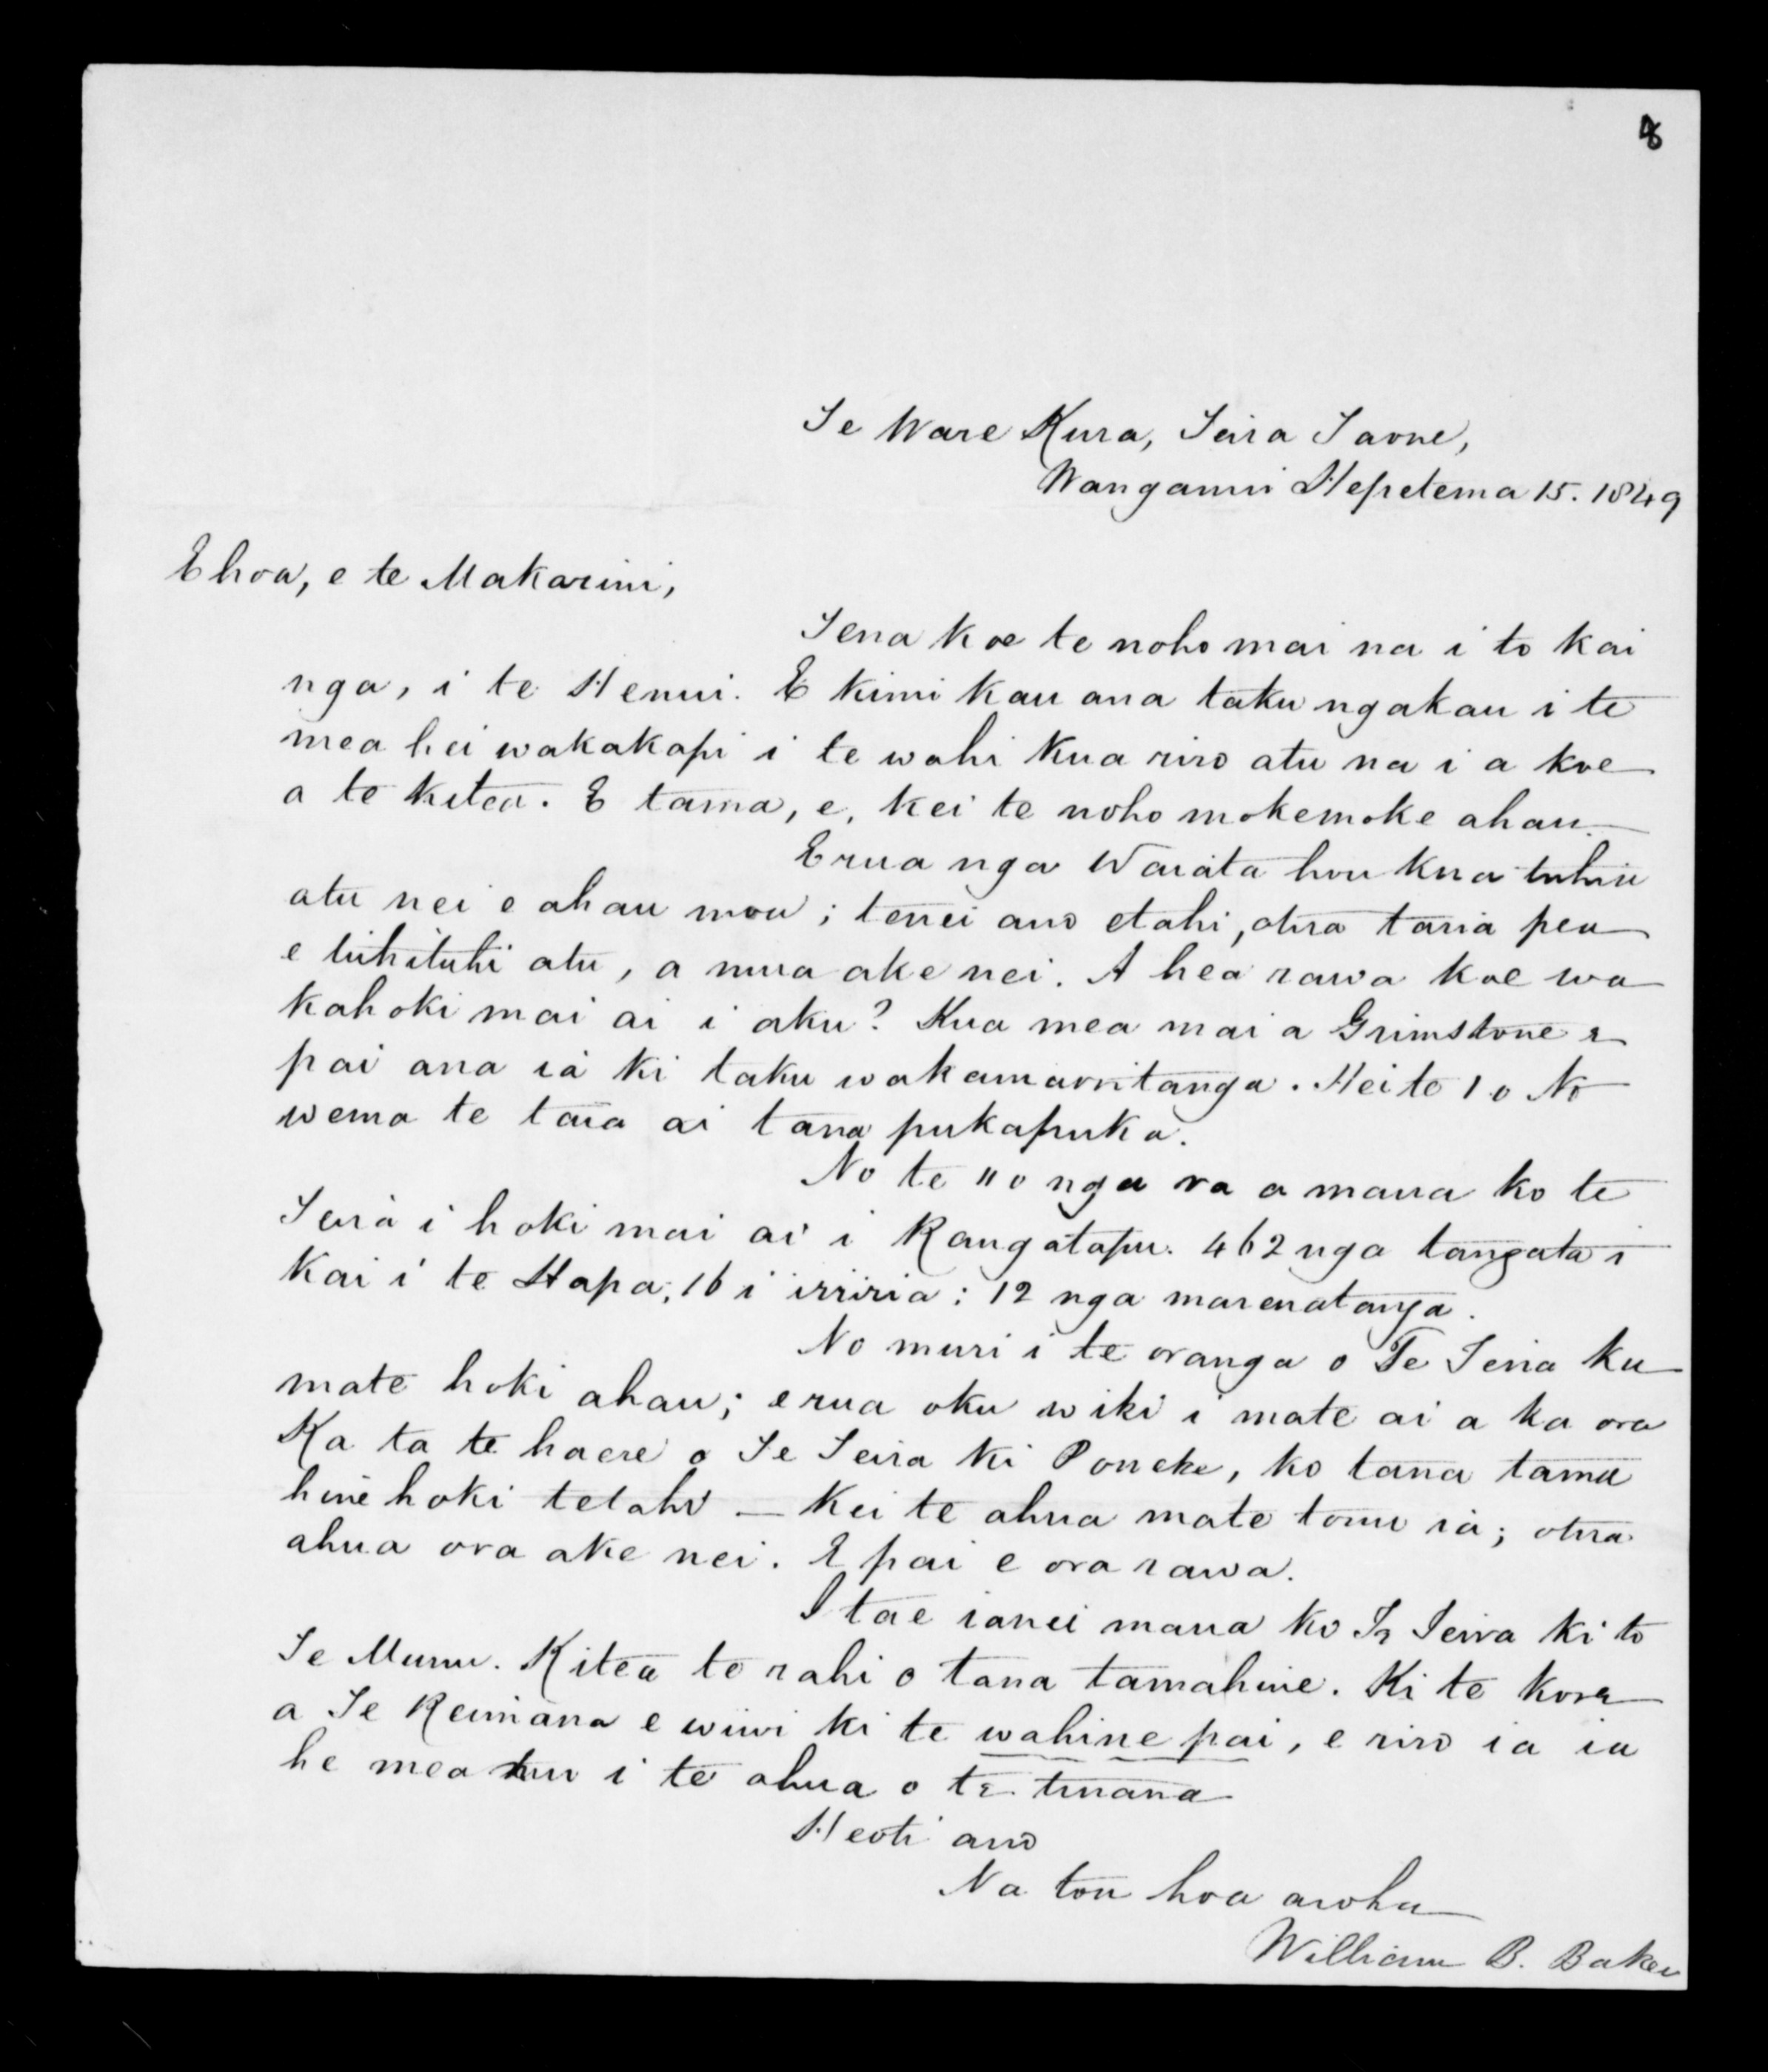 8
Te Ware Kura, Teira Taone,
Wanganui Hepetema 15. 1849
E hoa, e te Makarini,
Tena koe te noho mai na i to kai
nga, i te Henui. E kimi kau ana taku ngakau i te
mea hei wakakapi i te wahi kua riro atu na i a koe
a te kitea. E tama, e, kei te noho mokemoke ahau.
Erua nga Waiata hou kua tuhia
atu nei e ahau mou; tenei ano etahi, otira taria pea
e tuhituhi atu, a mua ake nei. A hea rawa koe wa
kahoki mai ai i aku? Kua mea mai a Grimstone e
pai ana ia ki taku wakamaoritanga. Hei te 1 o No
wema te taia ai tana pukapuka.
No te 11 o nga ra a maua ko te
Teira i hoki mai ai i Rangatapu. 462 nga tangata i
kai i te Hapa; 16 i iriiria: 12 nga marenatanga.
No muri i te oranga o Te Teira ku
mate hoki ahau; erua oku wiki i mate ai a ka ora
Ka ta te haere o Te Teira ki Poneke, ko tana tama
hine hoki tetahi — Kei te ahua mate tonu ia; otira
ahua ora ake nei. E pai e ora rawa.
I tae ianei maua ko Te Teira ki to
Te Mumu. Kitea te rahi o tana tamahine. Ki te kore
a Te Reimana e wiwi ki te wahine pai, e riro ia ia
he mea i te ahua o te tinana
Heoti ano
Na tou hoa aroha
William B. Baker